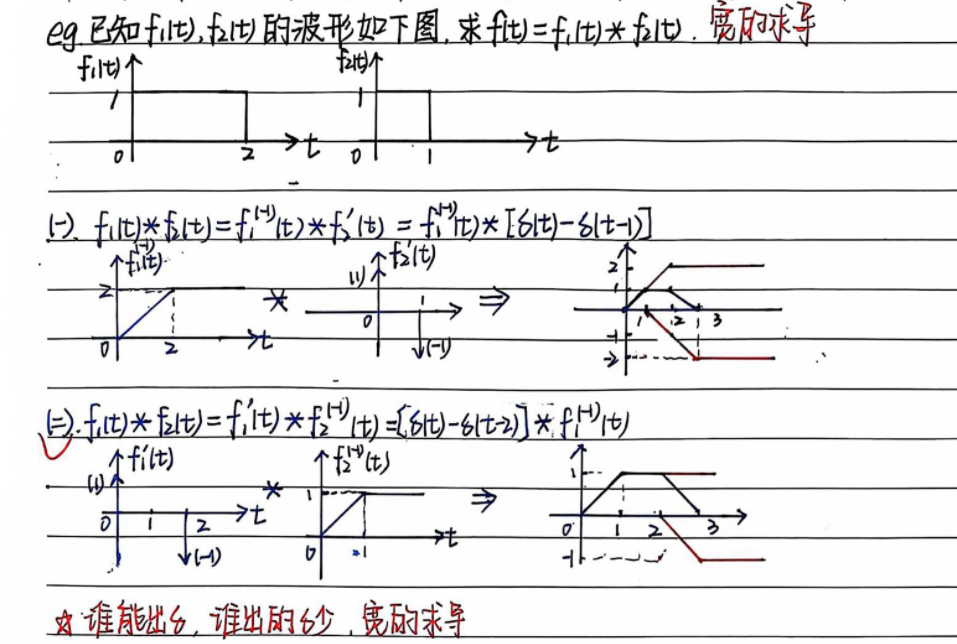 eg. 已知f₁(t), f₂(t)的波形如下图, 求f(t)=f₁(t)*f₂(t). 宽的求导
f₁(t) f₂(t)
1 1
0 2 t 0 1 t
(一). f₁(t)*f₂(t)=f₁⁽⁻¹⁾(t)*f₂′(t) = f₁⁽⁻¹⁾(t)*[δ(t)-δ(t-1)]
f₁⁽⁻¹⁾(t) f₂′(t)
2 * (1) 1 ⇒ 2 1
0 2 t 0 (-1) 1 2 3 -1 -2
(二). f₁(t)*f₂(t)=f₁′(t)*f₂⁽⁻¹⁾(t)=[δ(t)-δ(t-2)]*f₁⁽⁻¹⁾(t)
f₁′(t) f₂⁽⁻¹⁾(t)
(1) * 1 ⇒ 1
0 1 2 t 0 1 t 0 1 2 3
(-1) -1
☆ 谁能出δ, 谁出的δ少, 宽的求导